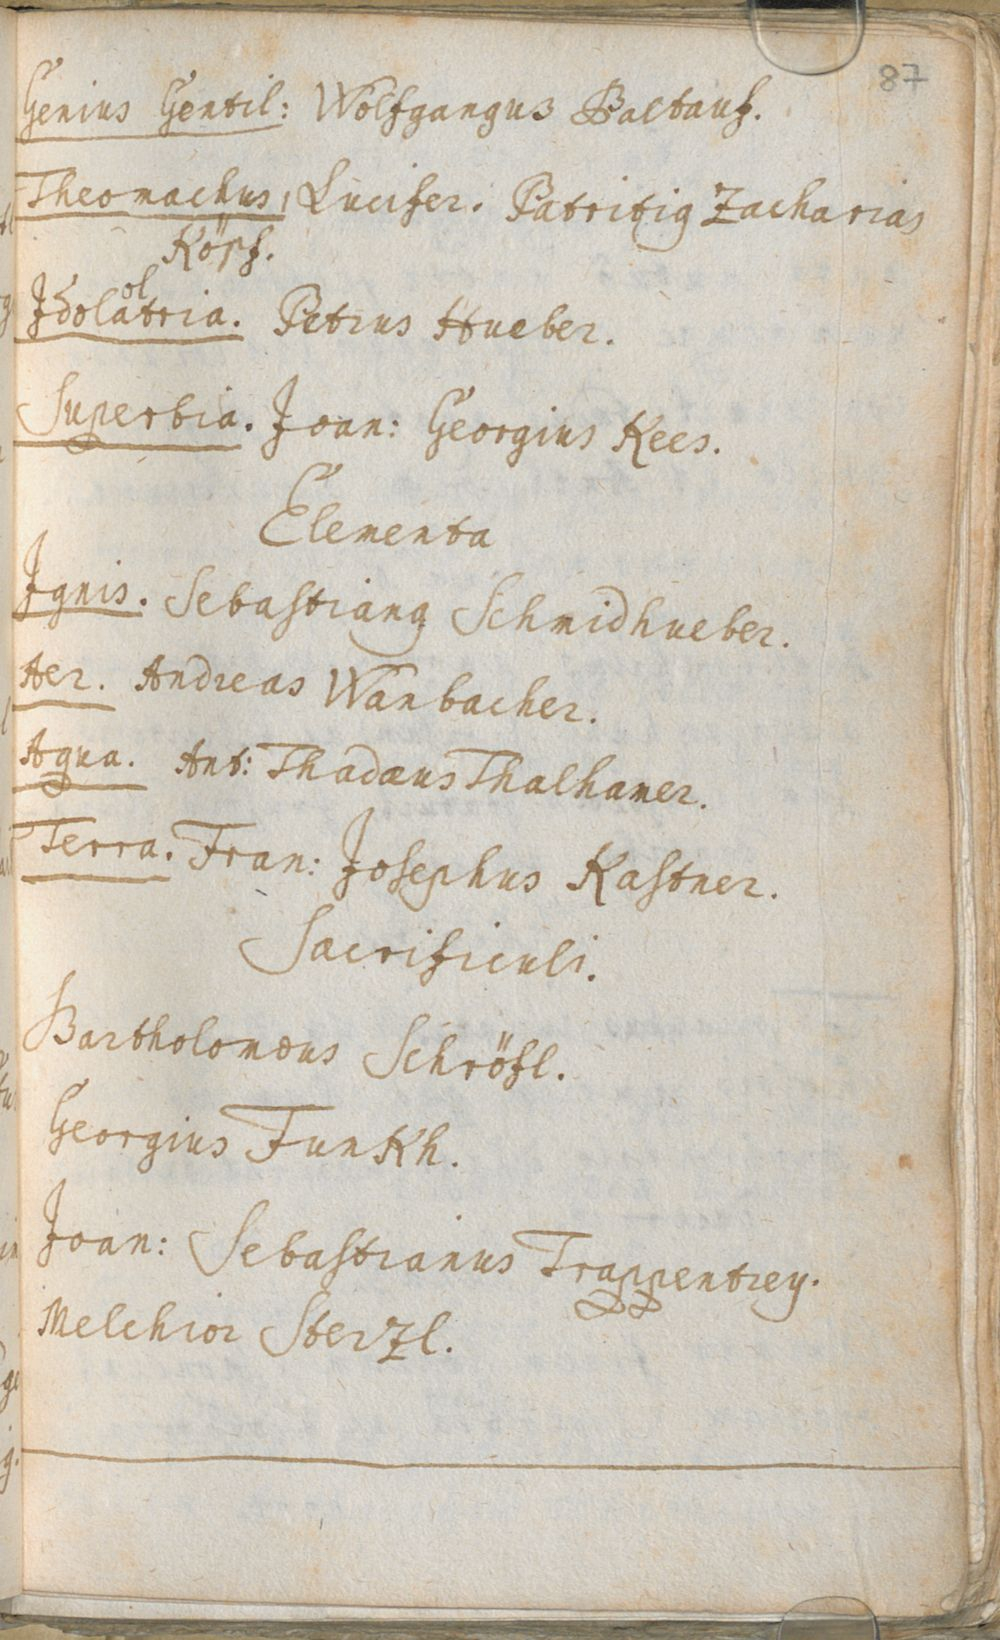 87
Genius Gentil: Wolfgangus Baltauf.
Theomachus, Lucifer. Patritig Zacharias
Köpf.
ol
Idolatria. Petrus Hueber.
Superbia. Joan: Georgius Kees.
Elementa
Ignis. Sebastiang Schmidhueber.
Aer. Andreas Wanbacher.
Aqua. Ant: Thadæus Thalhamer.
Terra. Fran: Josephus Kastner.
Sacrificuli.
Bartholomæus Schröfl.
Georgius Funkh.
Joan: Sebastianus Trappentrey.
Melchior Sterzl.